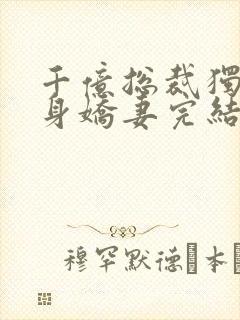 千億總裁獨
身嬌妻完結
穆罕默德 本